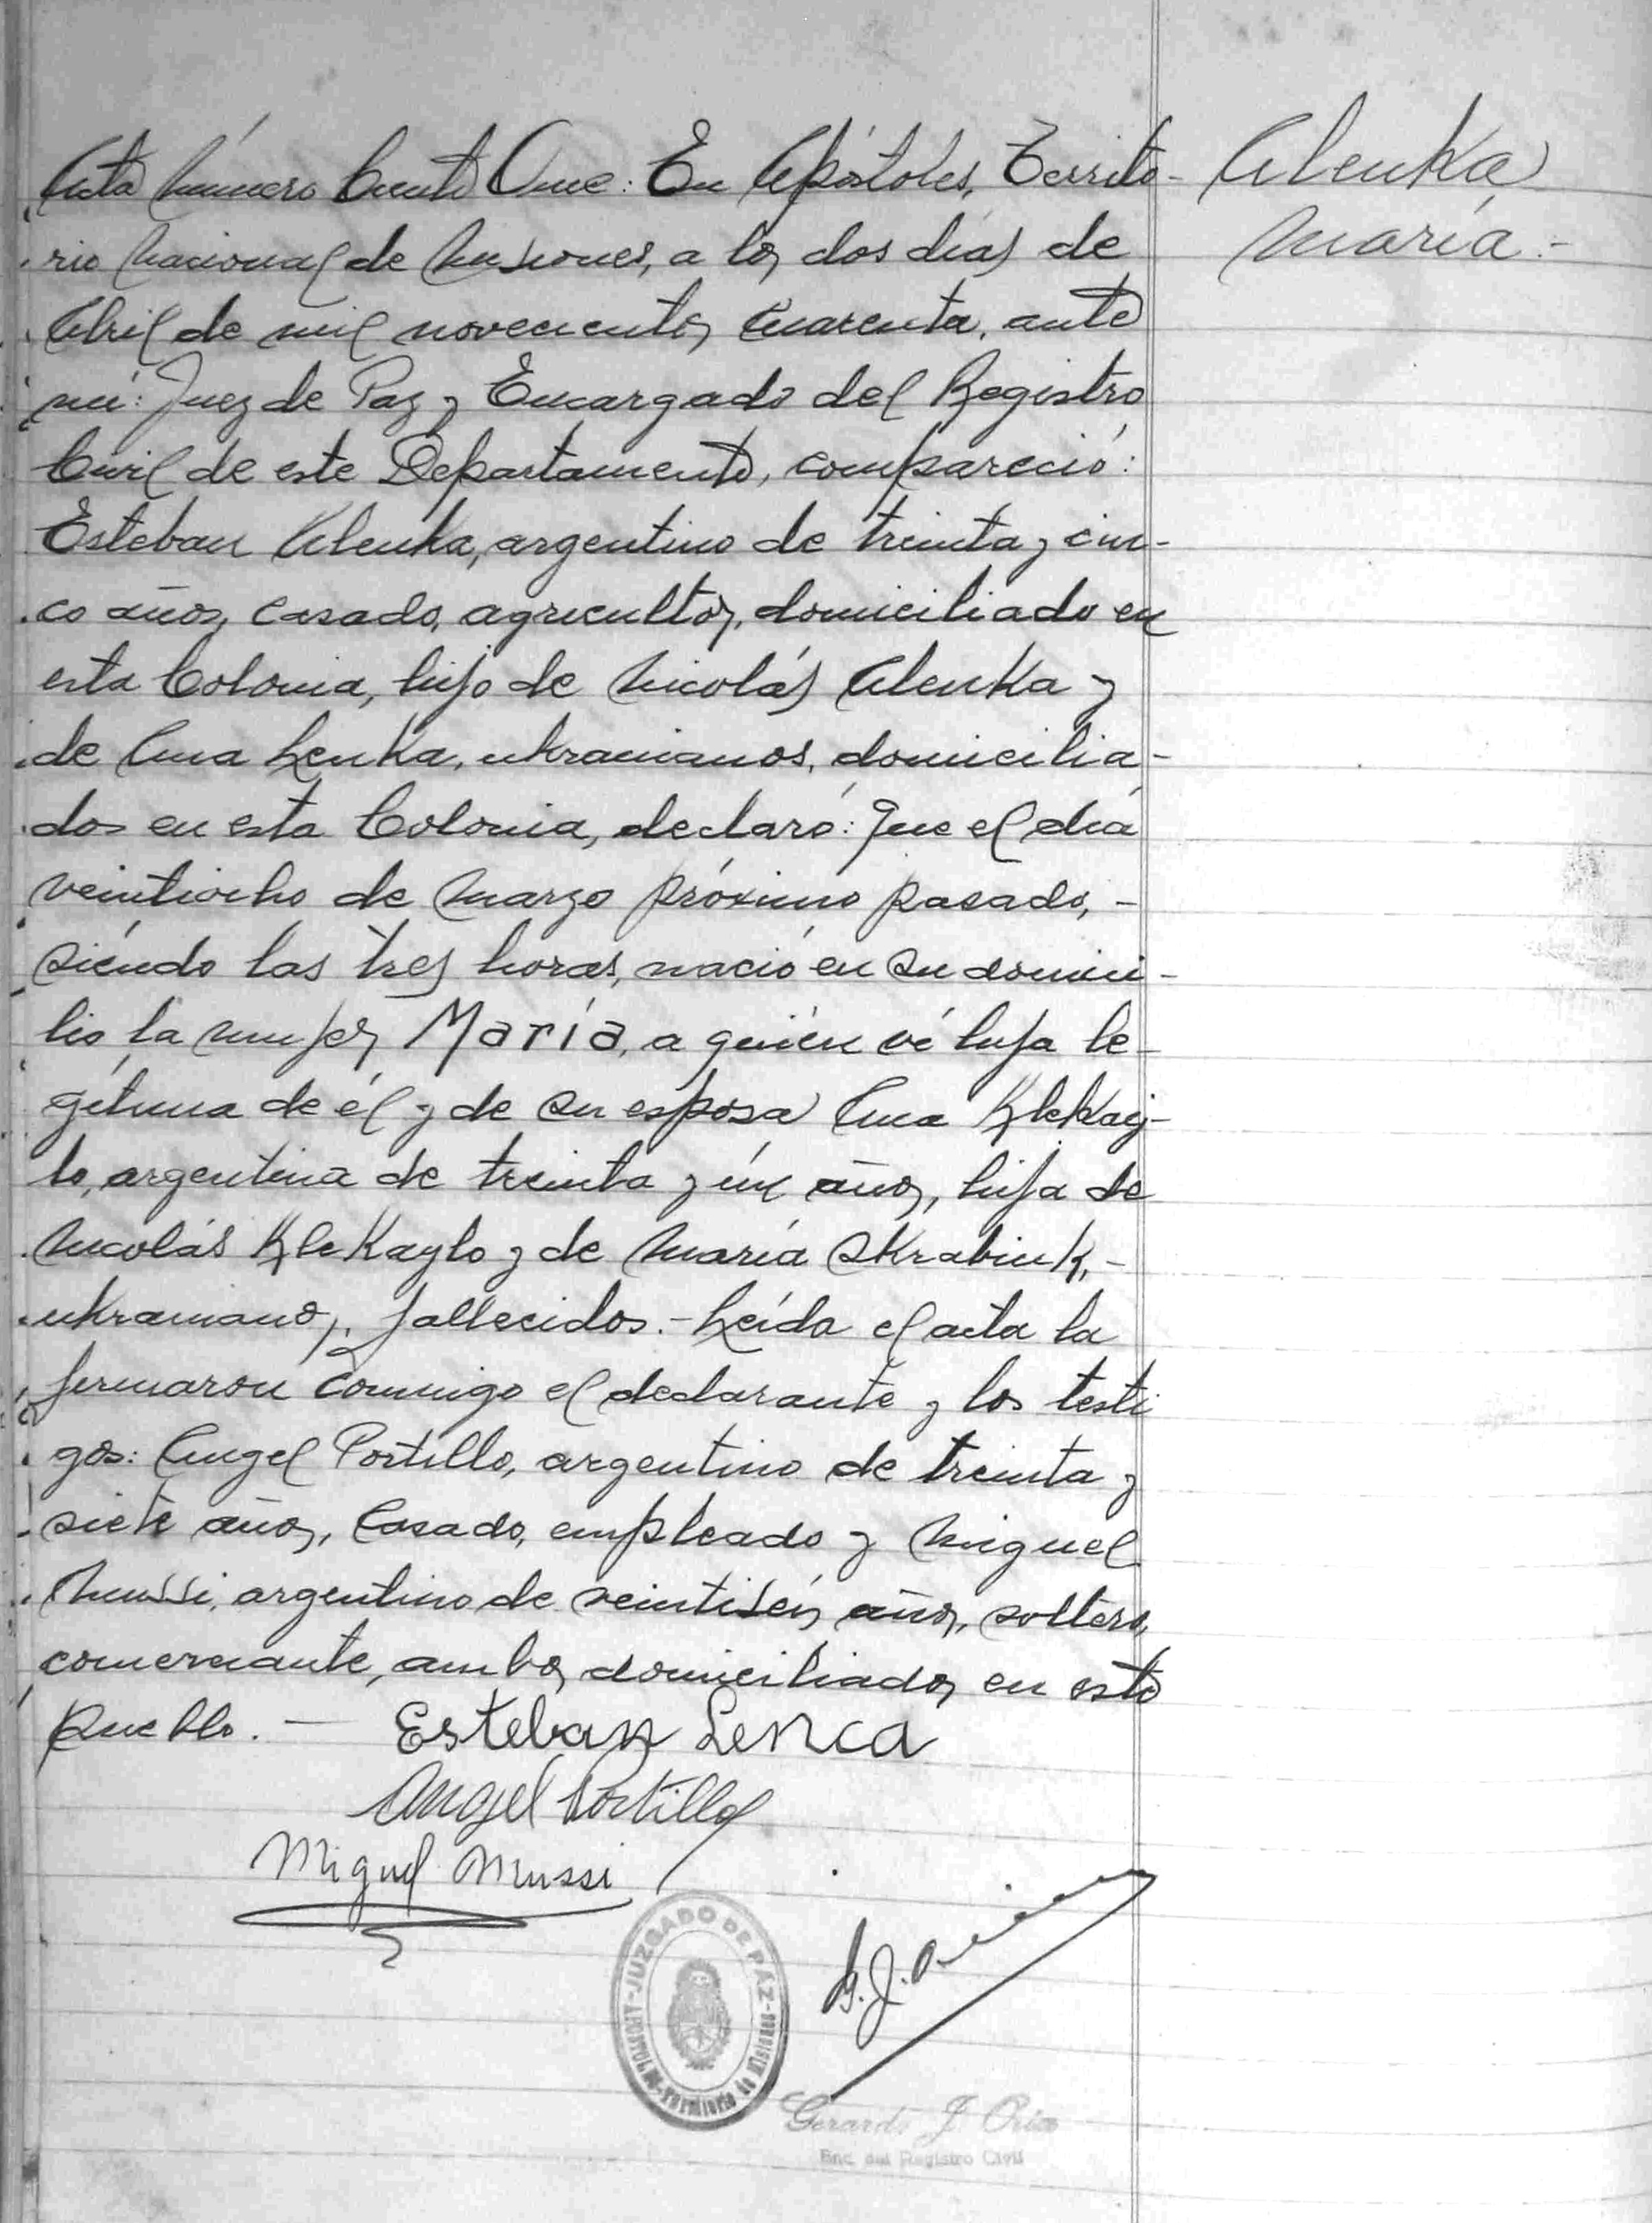 Acta número Ciento Once: En Apóstoles, Territo-
rio Nacional de Misiones, a los dos días de
Abril de mil novecientos cuarenta, ante
mí: Juez de Paz y Encargado del Registro
Civil de este Departamento, compareció:
Esteban Alenka, argentino de treinta y cin-
co años, casado, agricultor, domiciliado en
esta Colonia, hijo de Nicolás Alenka y
de Ana Lenka, ukranianos, domicilia-
dos en esta Colonia, declaró: Que el día
veintiocho de Marzo próximo pasado, -
siéndo las tres horas, nació en su domici-
lio la mujer María, a quién ví hija le-
gítima de él y de su esposa Ana Klekay-
lo, argentina de treinta y ún años, hija de
Nicolás Klekaylo y de María Skrabiuk, -
ukranianos, fallecidos. - Leída el acta la
firmaron conmigo el declarante y los testi
gos: Angel Portillo, argentino de treinta y
siete años, casado, empleado y Miguel
Mussi, argentino de veintiséis años, soltero,
comerciante, ambos domiciliados en este
pueblo. —
Esteban Lenca
Angel Portillo
Miguel Mussi
Alenka
María. -
JUZGADO DE PAZ
APOSTOLES - Territorio de Misiones
Gerardo J.
Enc. del Registro Civil